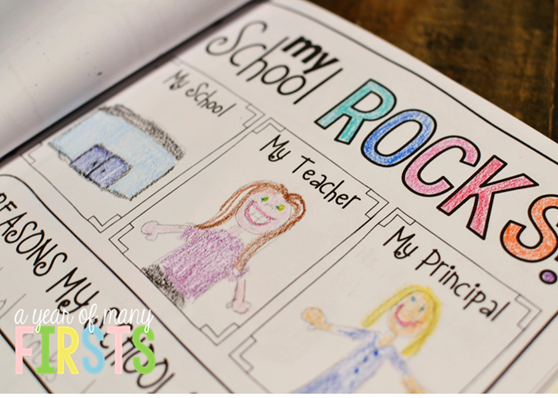 my
School
ROCKS!
My School
My Teacher
My Principal
REASONS MY
SCHOOL
a year of many
FIRSTS